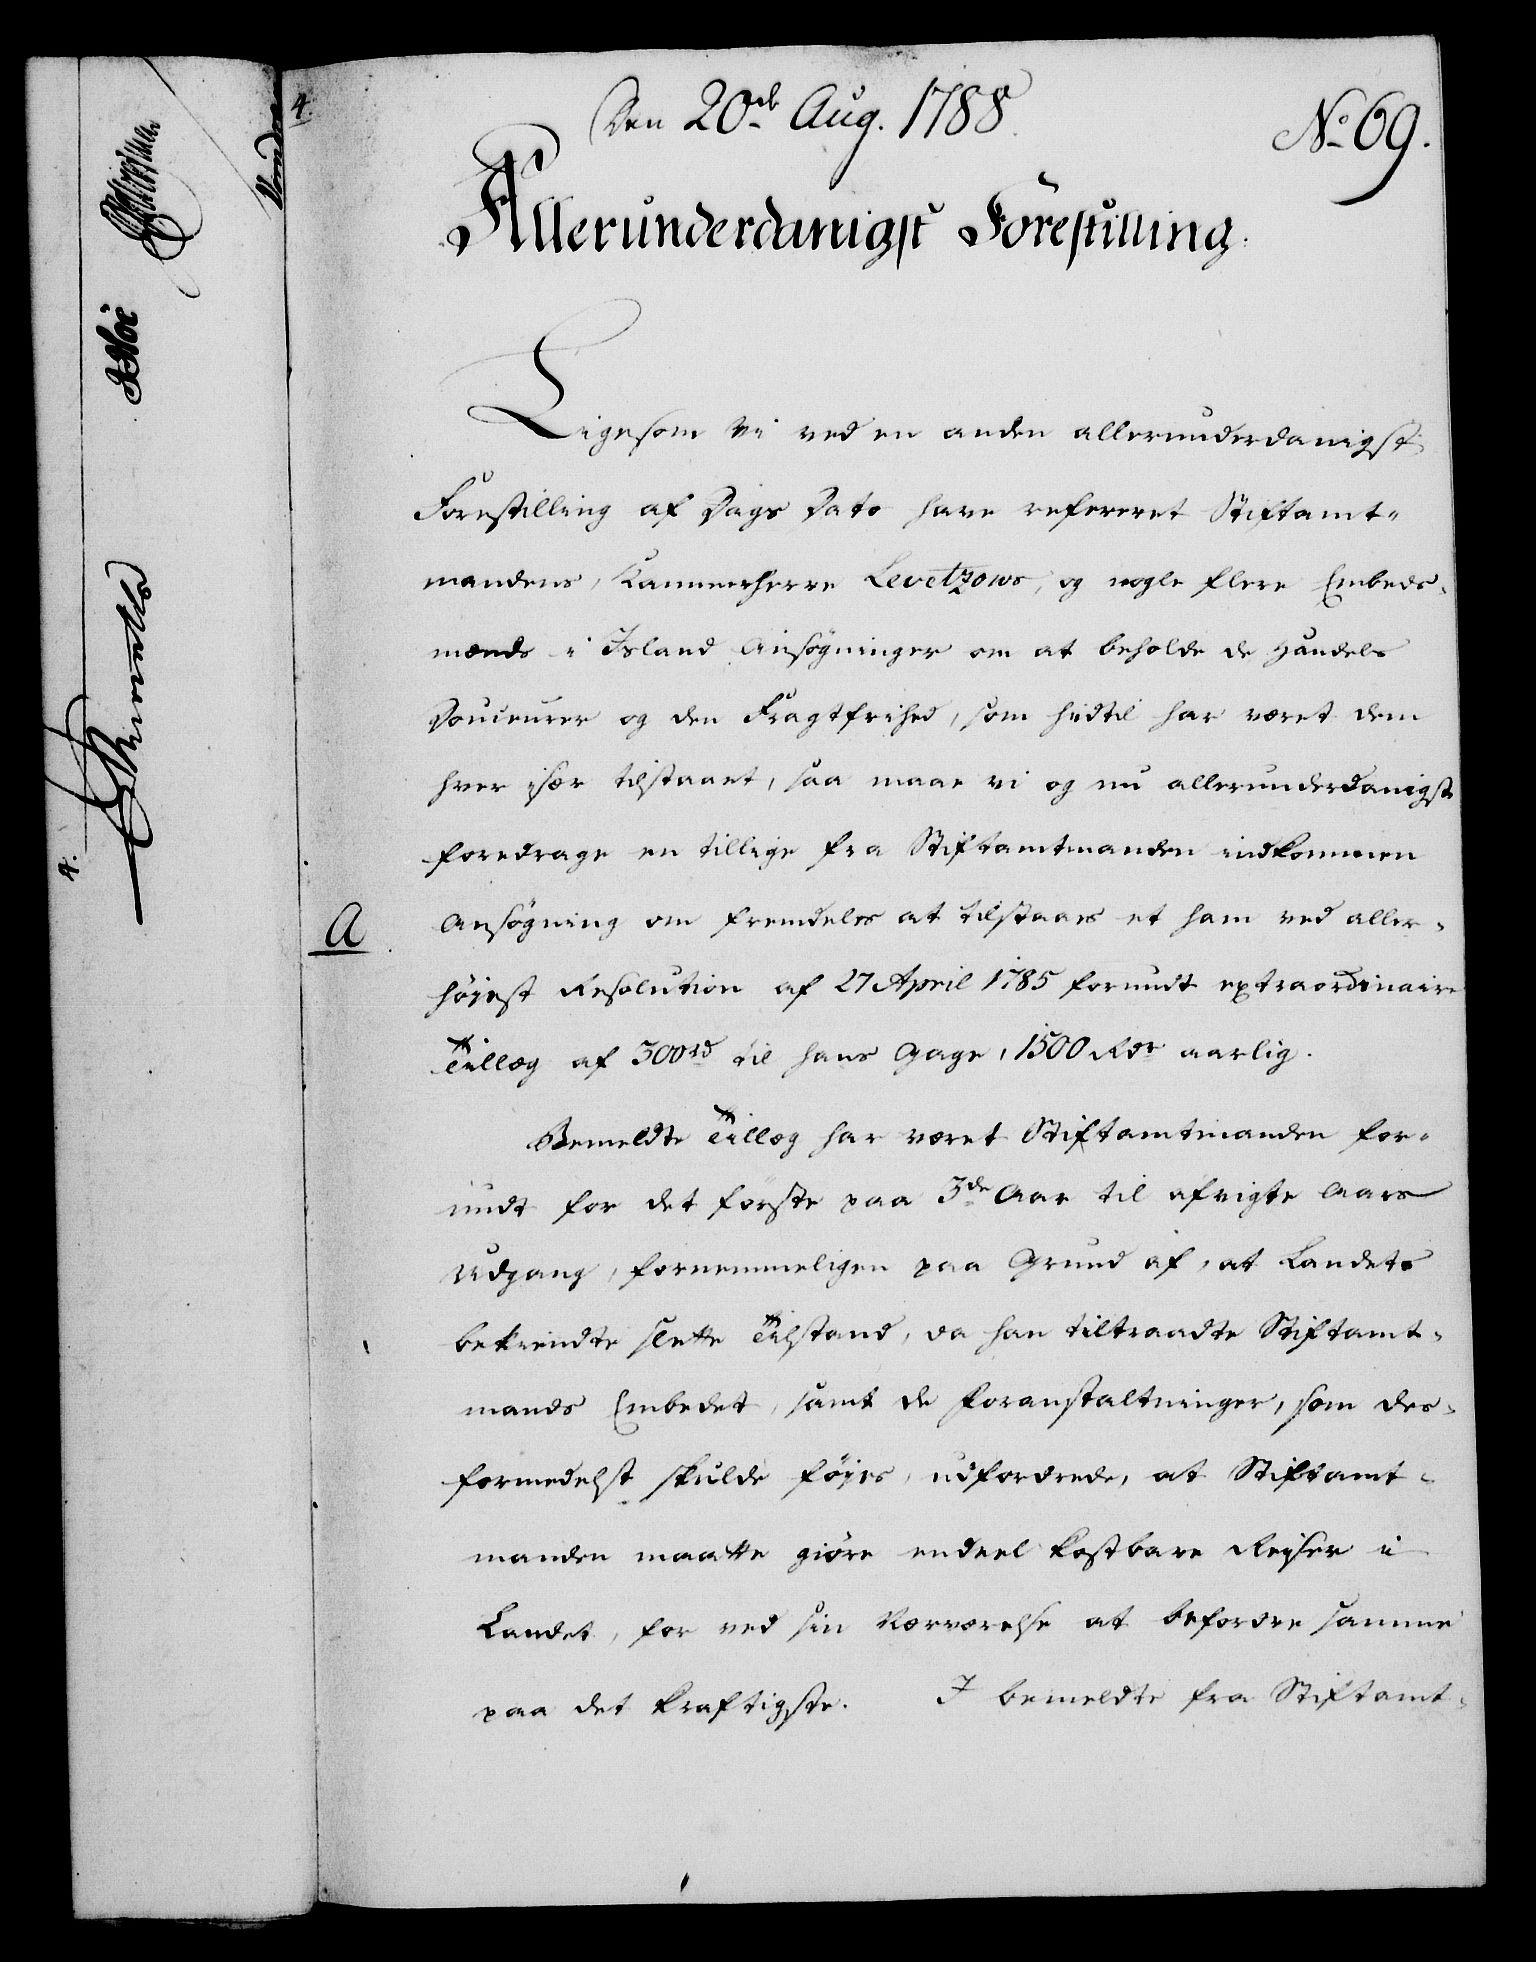 4.
Den 20de Aug. 1788.
No 69.
Allerunderdanigst Forestilling.
Ligesom Vi ved en anden allerunderdanigst
Forestilling af Dags Dato have refereret Stiftamt-
mandens, Kammerherre Levetzows, og nogle flere Embeds-
mænds i Island Ansøgninger om at beholde de Handels
Douceurer og den Fragtfrihed, som hidtil har været dem
hver især tilstaaet, saa maae vi og nu allerunderdanigst
foredrage en tillige fra Stiftamtmanden indkommen
A
Ansøgning om fremdeles at tilstaaes et ham ved aller-
højest Resolution af 27 April 1785 forundt extraordinaire
Tillæg af 300rd til hans Gage, 1500 Rdr aarlig.
Bemeldte Tillæg har været Stiftamtmanden for-
undt for det første paa 3de Aar til afvigte Aars
Udgang, fornemmeligen paa Grund af, at Landets
bekiendte slette Tilstand, da han tiltraadte Stiftamt-
mands Embedet, samt de Foranstaltninger, som des-
formedelst skulde føjes, udfordrede, at Stiftamt-
manden maatte giøre endeel kostbare Rejser i
Landet, for ved sin Nærværelse at befordre samme
paa det kraftigste. I bemeldte fra Stiftamt-
4.